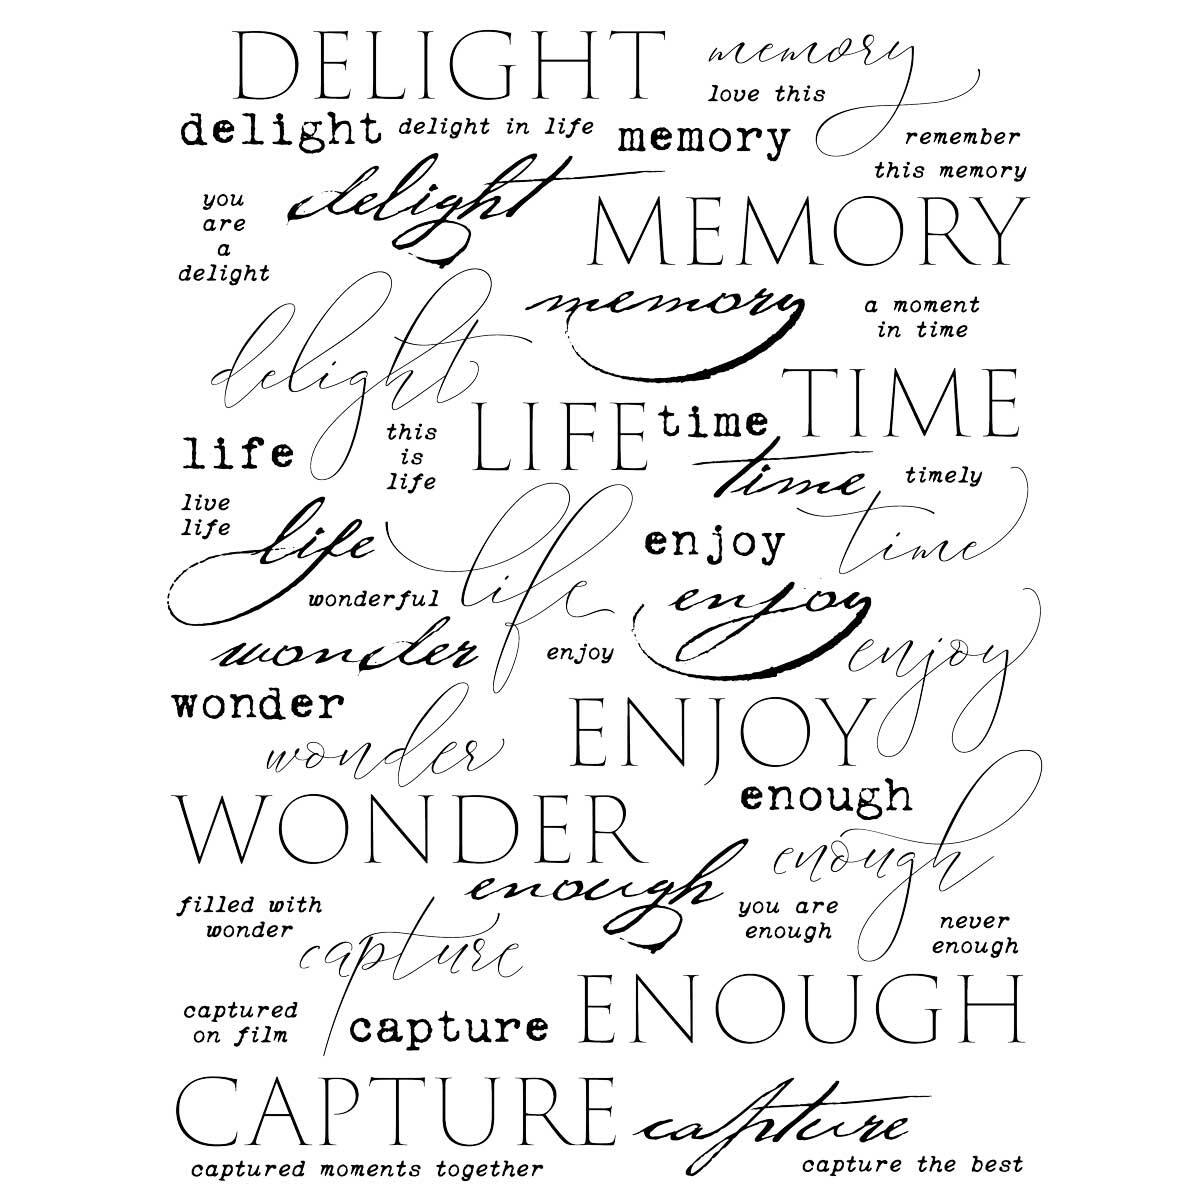 DELIGHT
memory
love this
delight
delight in life
memory
remember
this memory
you
are
a
delight
delight
MEMORY
memory
a moment
in time
delight
TIME
time
LIFE
this
is
life
life
time
timely
live
life
life
life
enjoy
time
wonderful
enjoy
wonder
enjoy
enjoy
wonder
ENJOY
wonder
enough
WONDER
enough
enough
filled with
wonder
you are
enough
never
enough
capture
ENOUGH
captured
on film
capture
CAPTURE
capture
captured moments together
capture the best